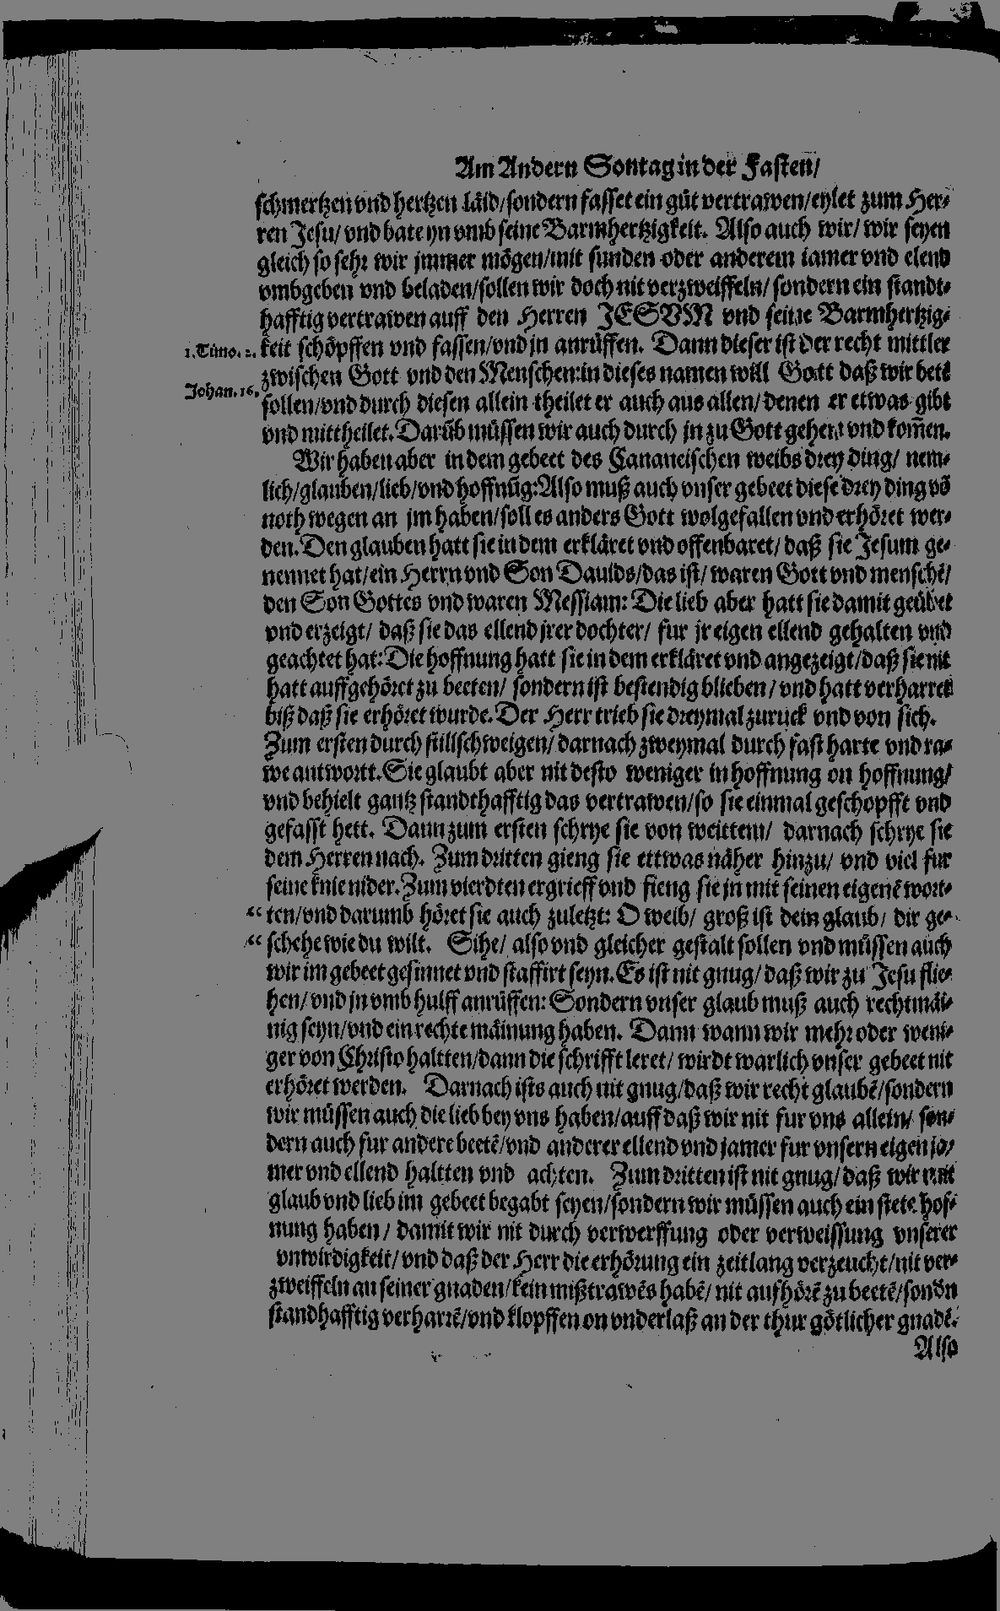 Am Andern Sontag in der Fasten/
schmertzen vnd hertzen läid/ sondern fasset ein güt vertrawen/ eylet zum Her-
ren Jesu/ vnd bate yn vmb seine Barmhertzigkeit. Also auch wir/ wir seyen
gleich so sehr wir jmmer mögen/ mit sunden oder anderem iamer vnd elend
vmbgeben vnd beladen/ sollen wir doch nit verzweiffeln/ sondern ein standt-
hafftig vertrawen auff den Herren JESVM vnd seine Barmhertzig-
1. Timo. 2. keit schöpffen vnd fassen/ vnd jn anrüffen. Dann dieser ist der recht mittler
zwischen Gott vnd den Menschen: in dieses namen will Gott daß wir betẽ
Johan. 16. sollen/ vnd durch diesen allein theilet er auch aus allen/ denen er etwas gibt
vnd mittheilet. Darüb müssen wir auch durch jn zu Gott gehen vnd kom̃en.
Wir haben aber in dem gebeet des Cananeischen weibs drey ding/ nem-
lich/ glauben/ lieb/ vnd hoffnũg: Also muß auch vnser gebeet diese drey ding võ
noth wegen an jm haben/ soll es anders Gott wolgefallen vnd erhöret wer-
den. Den glauben hatt sie in dem erkläret vnd offenbaret/ daß sie Jesum ge-
nennet hat/ ein Herrn vnd Son Dauids/ das ist/ waren Gott vnd menschẽ/
den Son Gottes vnd waren Messiam: Die lieb aber hatt sie damit geübet
vnd erzeigt/ daß sie das ellend jrer dochter/ fur jr eigen ellend gehalten vnd
geachtet hat: Die hoffnung hatt sie in dem erkläret vnd angezeigt/ daß sie nit
hatt auffgehöret zu beeten/ sondern ist bestendig blieben/ vnd hatt verharret
biß daß sie erhöret wurde. Der Herr trieb sie dreymal zuruck vnd von sich.
Zum ersten durch stillschweigen/ darnach zweymal durch fast harte vnd ra-
we antwortt. Sie glaubt aber nit desto weniger in hoffnung on hoffnung/
vnd behielt gantz standthafftig das vertrawen/ so sie einmal geschopfft vnd
gefasst hett. Dann zum ersten schrye sie von weittem/ darnach schrye sie
dem Herren nach. Zum dritten gieng sie ettwas näher hinzu/ vnd viel fur
seine knie nider. Zum vierdten ergrieff vnd fieng sie jn mit seinen eigenẽ wort-
“ ten/ vnd darumb höret sie auch zuletzt: O weib/ groß ist dein glaub/ dir ge-
“ schehe wie du wilt. Sihe/ also vnd gleicher gestalt sollen vnd müssen auch
wir im gebeet gesinnet vnd staffirt seyn. Es ist nit gnug/ daß wir zu Jesu flie-
hen/ vnd jn vmb hulff anrüffen: Sondern vnser glaub muß auch rechtmäi-
nig seyn/ vnd ein rechte mäinung haben. Dann wann wir mehr oder weni-
ger von Christo haltten/ dann die schrifft leret/ wirdt warlich vnser gebeet nit
erhöret werden. Darnach ists auch nit gnug/ daß wir recht glaubẽ/ sondern
wir müssen auch die lieb bey vns haben/ auff daß wir nit fur vns allein/ son-
dern auch fur andere beetẽ/ vnd anderer ellend vnd jamer fur vnsern eigen ja-
mer vnd ellend haltten vnd achten. Zum dritten ist nit gnug/ daß wir mit
glaub vnd lieb im gebeet begabt seyen/ sondern wir müssen auch ein stete hof-
nung haben/ damit wir nit durch verwerffung oder verweissung vnserer
vnwirdigkeit/ vnd daß der Herr die erhörung ein zeitlang verzeucht/ nit ver-
zweiffeln an seiner gnaden/ kein mißtrawẽs habẽ/ nit aufhörẽ zu beetẽ/ sondn
standhafftig verharrẽ/ vnd klopffen on vnderlaß an der thur götlicher gnadẽ.
Also